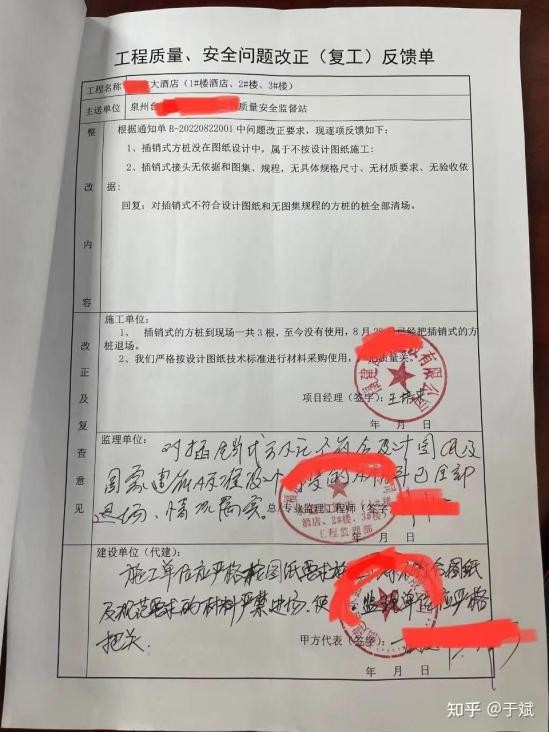 工程质量、安全问题改正（复工）反馈单
工程名称 大酒店（1#楼酒店、2#楼、3#楼）
主送单位 泉州台 质量安全监督站
整改内容
根据通知单 B-20220822001 中问题改正要求，现逐项反馈如下：
1、插销式方桩没在图纸设计中，属于不按设计图纸施工；
2、插销式接头无依据和图集、规程，无具体规格尺寸、无材质要求、无验收依
据；
回复：对插销式不符合设计图纸和无图集规程的方桩的桩全部清场。
改正及复查意见
施工单位：
1、 插销式的方桩到现场一共 3 根，至今没有使用，8 月 2 已经把插销式的方
桩退场。
2、我们严格按设计图纸技术标准进行材料采购使用， 质量关。
有限公司
项目经理（签字）：
年 月 日
监理单位：
对插销式方桩不符合设计图纸及
已全部
退场，情况属实。
总/专业监理工程师（签字）
酒店、2#楼、3#楼）
工程监理部
年 月 日
建设单位（代建）：
施工单位应严格按图纸要求施工 对不符合图纸
及规范要求的材料严禁进场、使 监理单位应严格
把关.
甲方代表（签字）：
年 月 日
知乎 @于斌